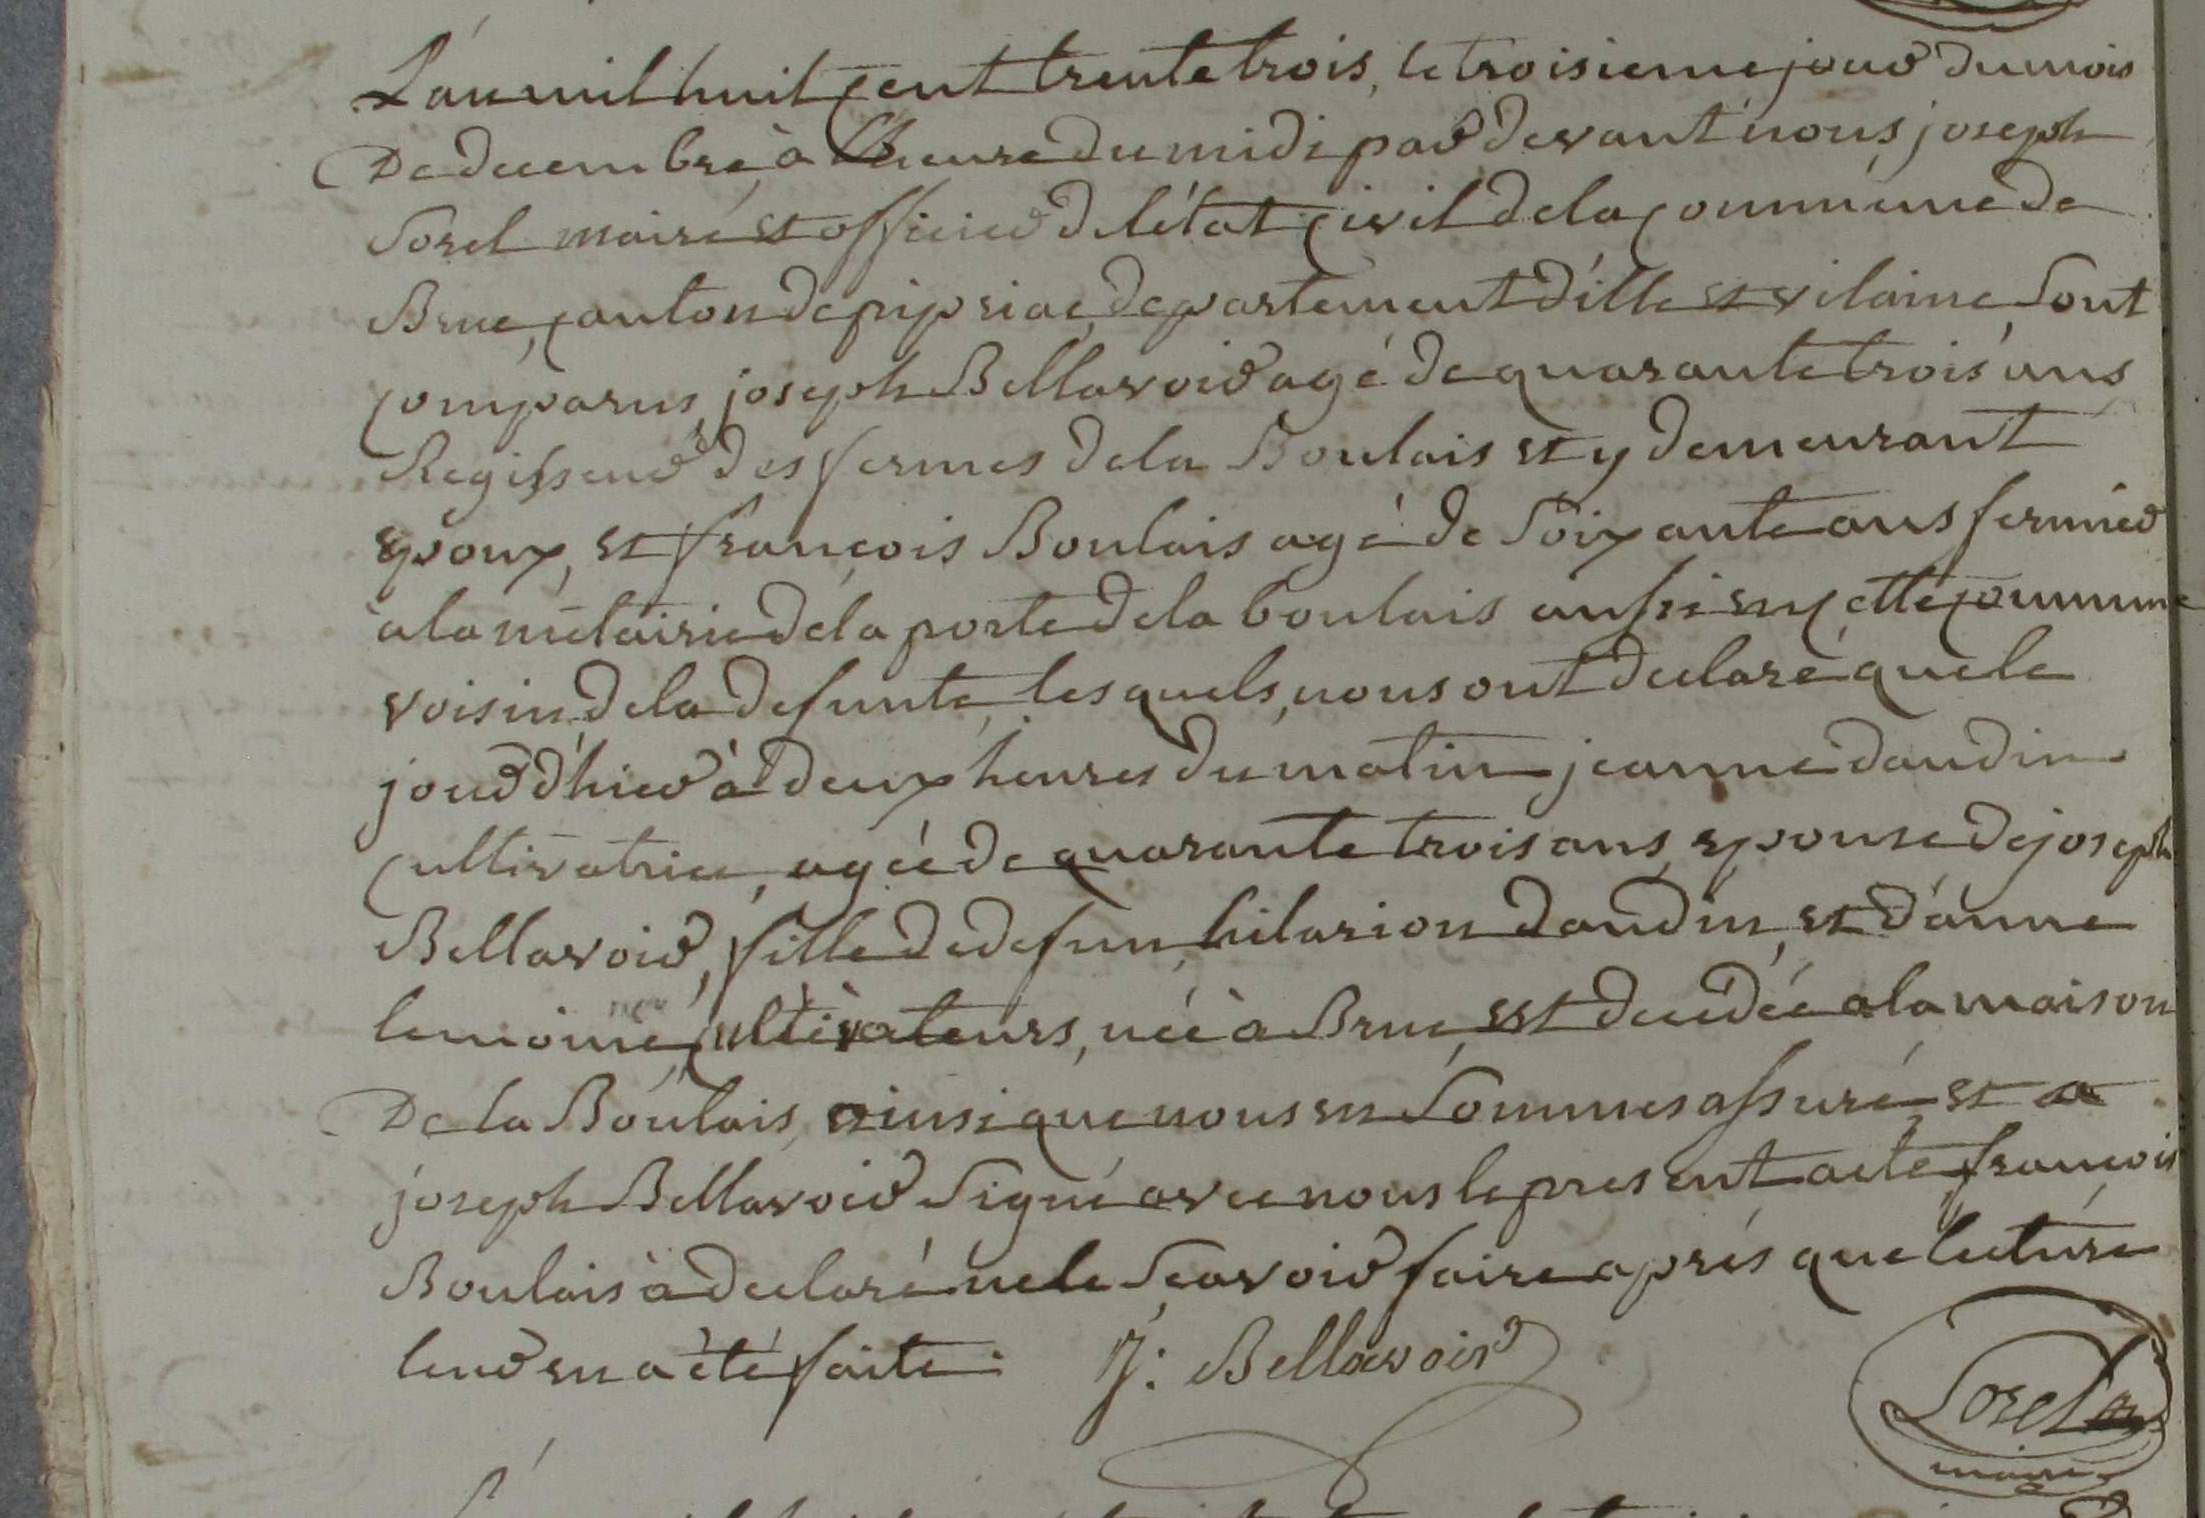 L'an mil huit cent trente trois, le troisieme jour du mois
De decembre, à l'heure du midi par devant nous, joseph
Sorel maire et officier de l'état civil de la commune de
Bruc, canton de pipriac, departement d'ille et vilaine, Sont
comparus, joseph Bellavoir agé de quarante trois ans
Regisseur des fermes de la Boulais et y demeurant
epoux, et françois Boulais agé de Soixante ans fermier
à la métairie de la porte de la boulais aussi en cette commune
voisin, de la defunte, les quels, nous ont declaré que le
jour d'hier à deux heures du matin jeanne daudin
cultivatrice, agée de quarante trois ans, epouse de joseph
Bellavoir, fille de defun, hilarion daudin, et d'anne
lemoine, cultivateurs, née à Bruc, est decedée a la maison
De la Boulais, ainsi que nous en Sommes assuré et a
joseph Bellavoir Signé avec nous le present acte, françois
Boulais à declaré ne le Scavoir faire après que lecture
leur en a été faite.
J: Bellavoir
Sorel
maire